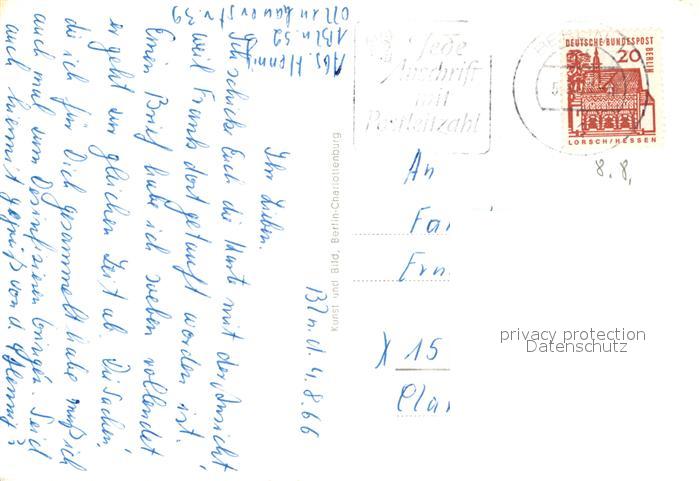 Abs. Hennig
1 Bln. 52
39
Bln. d. 4.8.66
Ihr Lieben.
Ich schicke Euch die Karte mit der Ansicht
weil Frank dort getauft worden ist.
Einen Brief habe ich soeben vollendet
er geht zur gleichen Zeit ab. Die Sachen,
die ich für Dich gesammelt habe muß ich
auch mal zum Desinfizieren bringen. Seid
auch hiermit gegrüßt von d. Hennigs
Kunst und Bild, Berlin-Charlottenburg
Jede
Anschrift
mit
Postleitzahl
BERLIN
DEUTSCHE BUNDESPOST
BERLIN
20
LORSCH/HESSEN
8.8.
An
Fa
X 15
privacy protection
Datenschutz